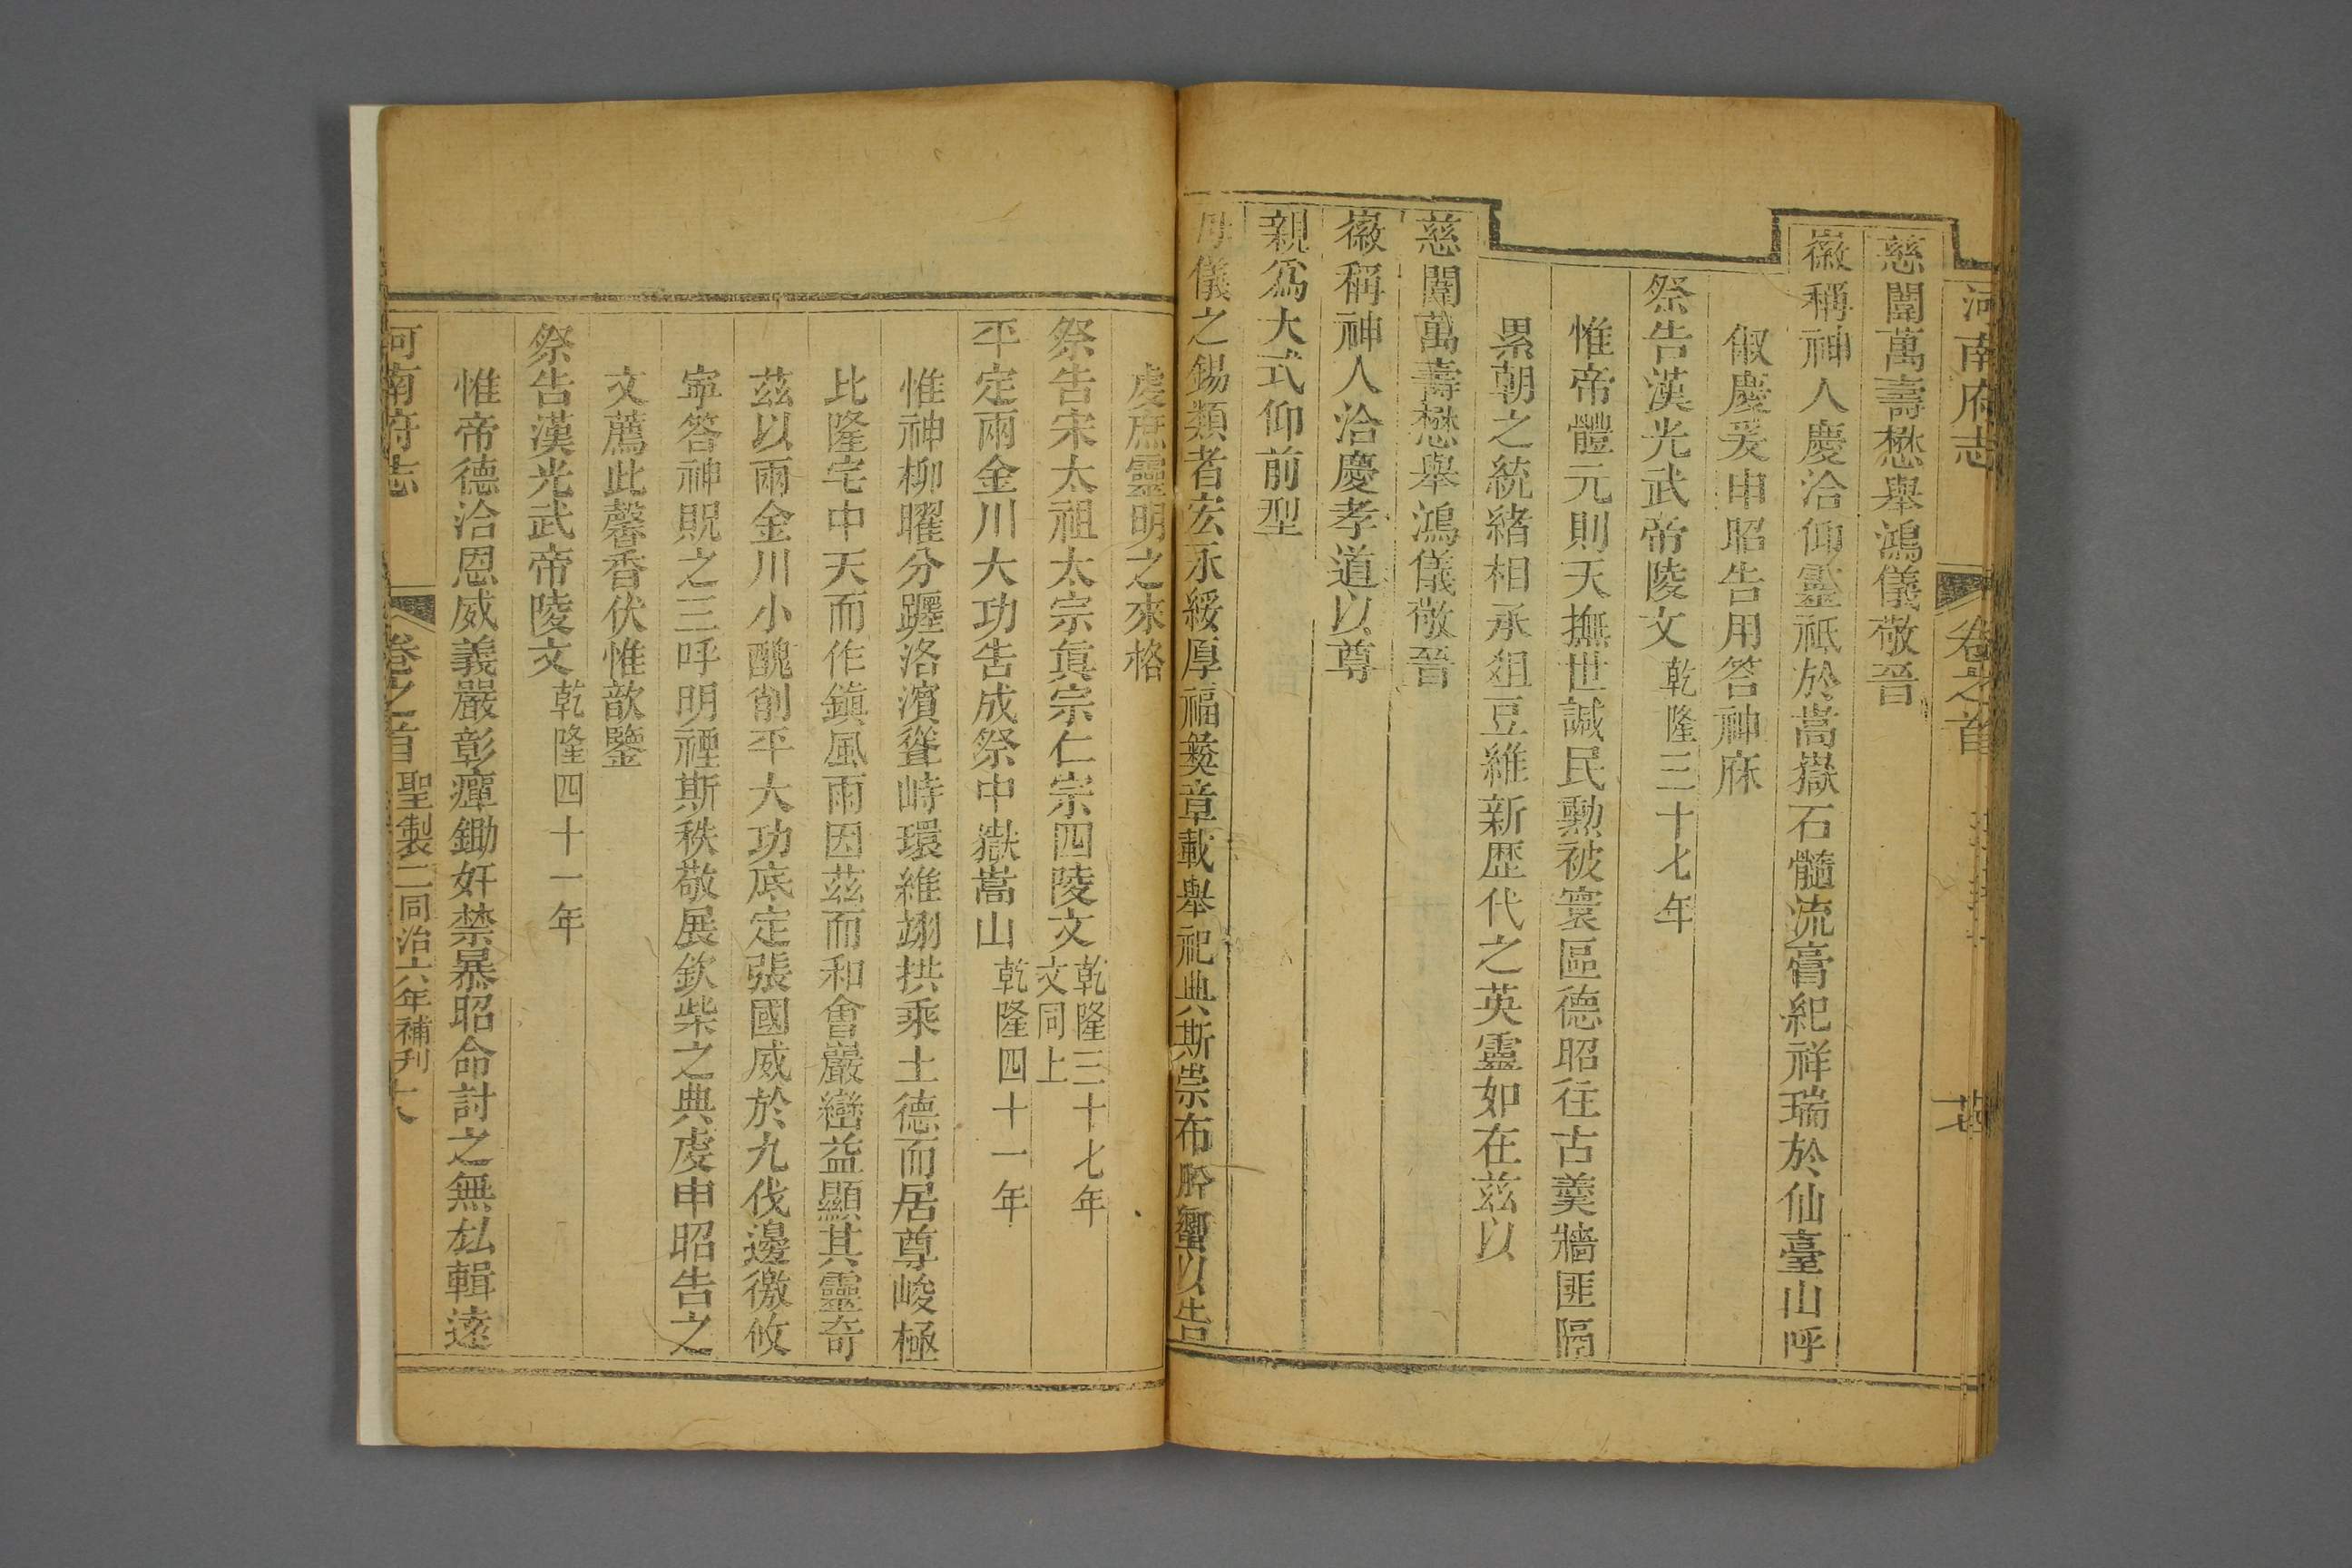 河南府志 卷之首
慈闈萬壽懋舉鴻儀敬晉
徽稱神人慶洽仰靈祗於嵩嶽石髓流膏紀祥瑞於仙臺山呼
俶慶爰申昭告用答神庥
祭告漢光武帝陵文 乾隆三十七年
惟帝體元則天撫世諴民勲被寰區德昭往古羹牆匪隔
累朝之統緒相承俎豆維新歴代之英靈如在茲以
慈闈萬壽懋舉鴻儀敬晉
徽稱神人洽慶孝道以尊
親爲大式仰前型
母儀之錫類者宏永綏厚福彝章載舉祀典斯崇布肹蠁以告
虔庶靈明之來格
祭告宋太祖太宗眞宗仁宗四陵文 乾隆三十七年文同上
平定兩金川大功告成祭中嶽嵩山 乾隆四十一年
惟神柳曜分躔洛濱聳峙環維翊拱乘土德而居尊峻極
比隆宅中天而作鎮風雨因茲而和會巖巒益顯其靈奇
茲以兩金川小醜削平大功底定張國威於九伐邊徼攸
寧答神貺之三呼明禋斯秩敬展欽柴之典虔申昭告之
文薦此馨香伏惟歆鑒
祭告漢光武帝陵文 乾隆四十一年
惟帝德洽恩威義嚴彰癉鋤奸禁暴昭命討之無私輯遠
河南府志 卷之首 聖製二 同治六年補刋 十八